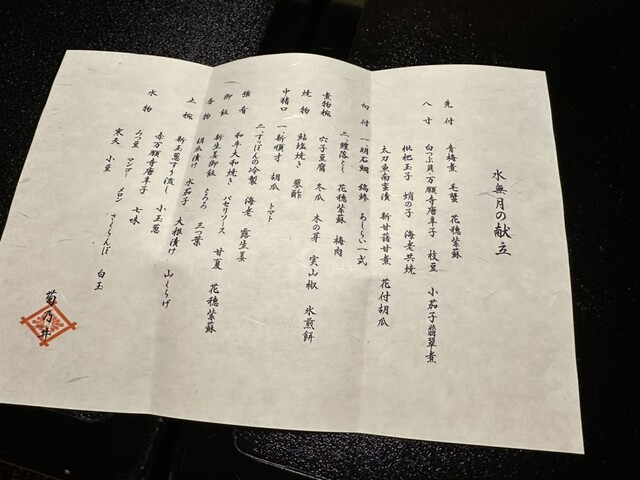 水無月の献立
先付 青梅煮 毛蟹 花穂紫蘇
八寸 白つぶ貝 万願寺唐辛子 枝豆 小茄子翡翠煮
枇杷玉子 蛸の子 海老共焼
太刀魚南蛮漬 新甘藷甘煮 花付胡瓜
向付 一、明石鯛 縞鯵 あしらい一式
二、鱧落とし 花穂紫蘇 梅肉
煮物椀 穴子豆腐 冬瓜 木の芽 実山椒 氷煎餅
焼物 鮎塩焼き 蓼酢
中猪口 一、新順才 胡瓜 トマト
二、すっぽんの冷製 海老 露生姜
強肴 和牛大和焼き パセリソース 甘夏 花穂紫蘇
御飯 新生姜御飯 とろろ 三つ葉
香物 胡瓜漬け 水茄子 大根漬け 山くらげ
止椀 新玉葱すり流し 小玉葱
赤万願寺唐辛子 七味
水物 みつ豆 マンゴー メロン さくらんぼ 白玉
寒天 小豆
菊乃井